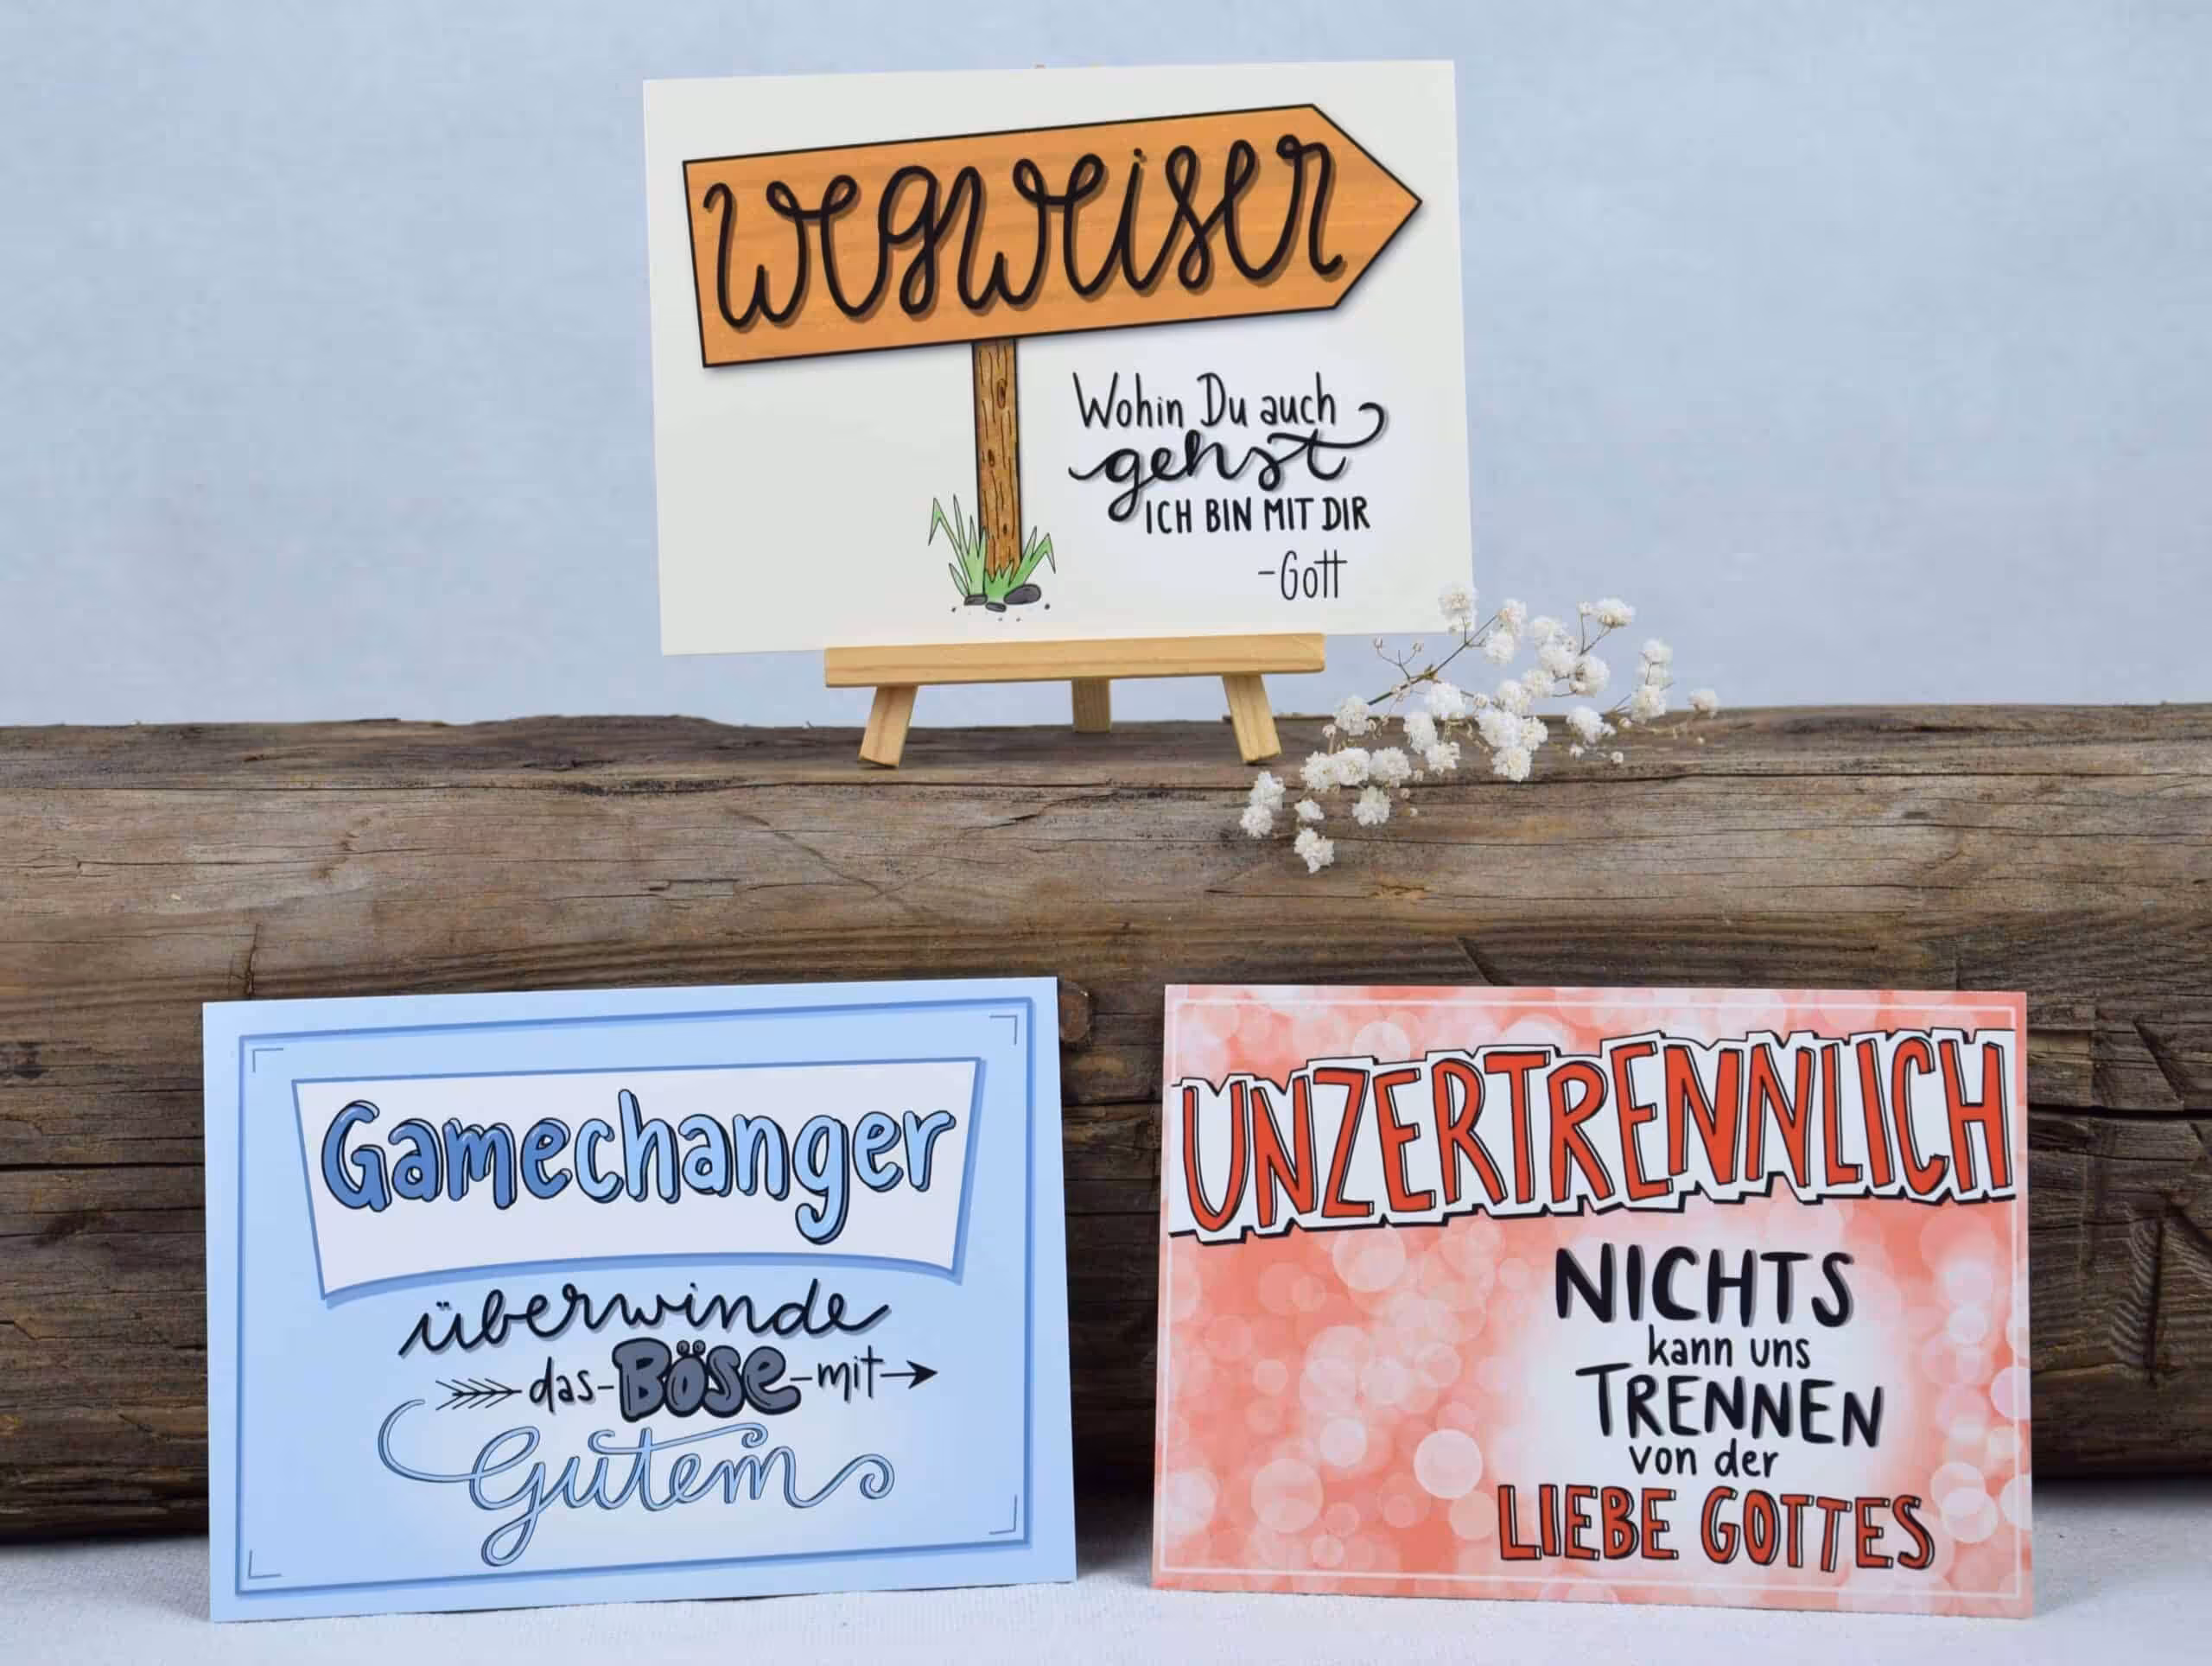 wegweiser
Wohin Du auch
gehst
ICH BIN MIT DIR
-Gott
Gamechanger
überwinde
das-BÖSe-mit
Gutem
UNZERTRENNLICH
NICHTS
kann uns
TRENNEN
von der
LIEBE GOTTES